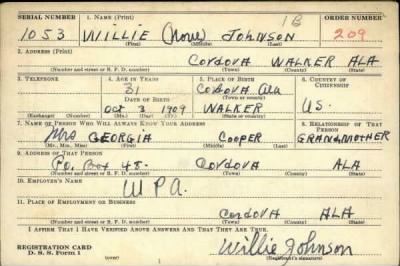 SERIAL NUMBER 1. NAME (Print) ORDER NUMBER
1B
1053 WILLIE (None) JOHNSON 209
(First) (Middle) (Last)
2. ADDRESS (Print)
CORDOVA WALKER ALA
(Number and street or R. F. D. number) (Town) (County) (State)
3. TELEPHONE 4. AGE IN YEARS 5. PLACE OF BIRTH 6. COUNTRY OF CITIZENSHIP
31 CORDOVA Ala
DATE OF BIRTH (Town or county)
OCT 3 1909 WALKER U.S.
(Exchange) (Number) (Mo.) (Day) (Yr.) (State or country)
7. NAME OF PERSON WHO WILL ALWAYS KNOW YOUR ADDRESS 8. RELATIONSHIP OF THAT PERSON
Mrs GEORGIA COOPER GRANDMOTHER
(Mr., Mrs., Miss) (First) (Middle) (Last)
9. ADDRESS OF THAT PERSON
P.O. Box 45. CORDOVA ALA
(Number and street or R. F. D. number) (Town) (County) (State)
10. EMPLOYER'S NAME
W.P.A.
11. PLACE OF EMPLOYMENT OR BUSINESS
CORDOVA ALA
(Number and street or R. F. D. number) (Town) (County) (State)
I AFFIRM THAT I HAVE VERIFIED ABOVE ANSWERS AND THAT THEY ARE TRUE.
REGISTRATION CARD Willie Johnson
D. S. S. Form 1 (Registrant's signature)